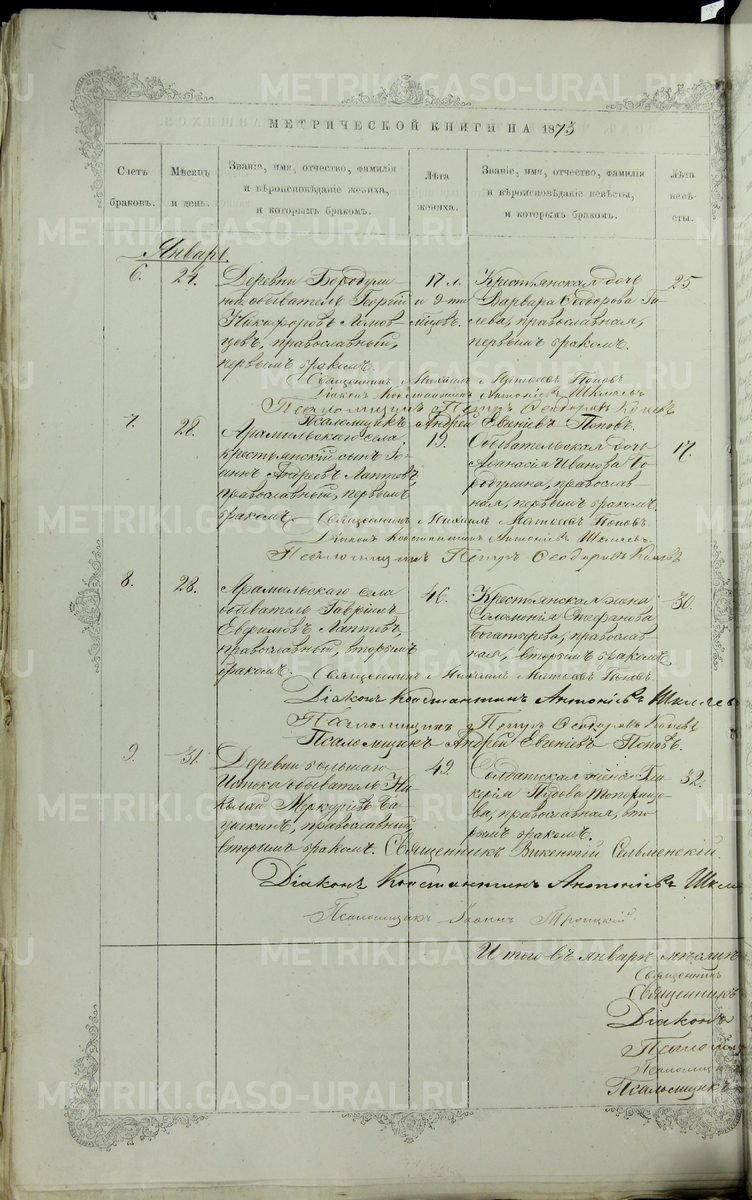 МЕТРИЧЕСКОЙ КНИГИ НА 1873
Счетъ браковъ.
Мѣсяцъ и день.
Званіе, имя, отчество, фамилія
и вѣроисповѣданіе жениха,
и которымъ бракомъ.
Лѣта жениха.
Званіе, имя, отчество, фамилія
и вѣроисповѣданіе невѣсты,
и которымъ бракомъ.
Лѣта невѣсты.
Январь.
6. 24. Деревни Бородули-
ной обыватель Георгій
Никифоровъ
православный,
первымъ бракомъ.
17 л.
и 9 ти
мѣсцовъ.
Крестьянская дочь
Варвара Ѳеодорова Га-
лева, православная,
первымъ бракомъ.
25
Священникъ Михаилъ Матѳеевъ Поповъ
Діаконъ Константинъ Антоніевъ Шкляевъ
Псаломщикъ Петръ Ѳеодоровъ
Псаломщикъ Андрей Евгеніевъ Поповъ.
7. 28. Арамильскаго села
крестьянскій сынъ Іо-
аннъ Андреевъ Лаптевъ,
православный, первымъ
бракомъ.
19.
Обывательская дочь
Аѳанасія Иванова Бо-
родулина, православ-
ная, первымъ бракомъ.
17.
Священникъ Михаилъ Матѳеевъ Поповъ
Діаконъ Константинъ Антоніевъ Шкляевъ
Псаломщикъ Петръ Ѳеодоровъ
8. 28. Арамильскаго села
обыватель Гавріилъ
Евфимовъ Лаптевъ,
православный, вторымъ
бракомъ.
46.
Крестьянская жена
Соломонія Стефанова
Богатырева, православ-
ная, вторымъ бракомъ.
30.
Священникъ Михаилъ Матѳеевъ Поповъ
Діаконъ Константинъ Антоніевъ Шкляевъ
Псаломщикъ Петръ Ѳеодоровъ
Псаломщикъ Андрей Евгеніевъ Поповъ.
9. 31. Деревни большаго
Истока обыватель Ни-
колай Меркурьевъ
православный,
вторымъ бракомъ.
49.
Солдатская жена Гли-
керія Топорище-
ва, православная, вто-
рымъ бракомъ.
32.
Священникъ Викентій Сельменскій.
Діаконъ Константинъ Антоніевъ
Псаломщикъ Іоаннъ Троицкій
Итого въ январѣ мѣсяцѣ
Священникъ
Священникъ
Діаконъ
Псаломщикъ
METRIKI.GASO-URAL.RU